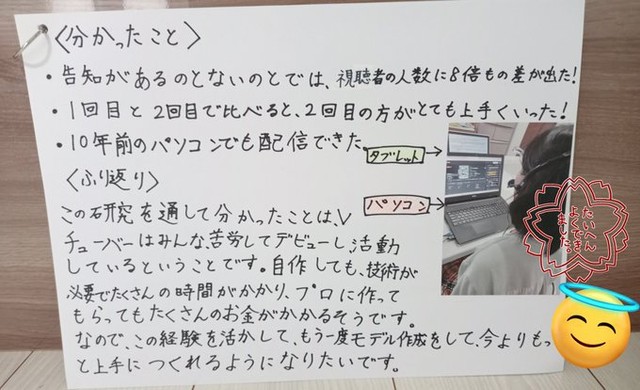 〈分かったこと〉
・告知があるのとないのとでは、視聴者の人数に8倍もの差が出た！
・1回目と2回目で比べると、2回目の方がとても上手くいった！
・10年前のパソコンでも配信できた。
タブレット
パソコン
〈ふり返り〉
この研究を通して分かったことは、V
チューバーはみんな苦労してデビューし活動
しているということです。自作しても、技術が
必要でたくさんの時間がかかり、プロに作って
もらってもたくさんのお金がかかるそうです。
なので、この経験を活かして、もう一度モデル作成をして、今よりもっ
と上手につくれるようになりたいです。
たいへん
よくでき
ました。